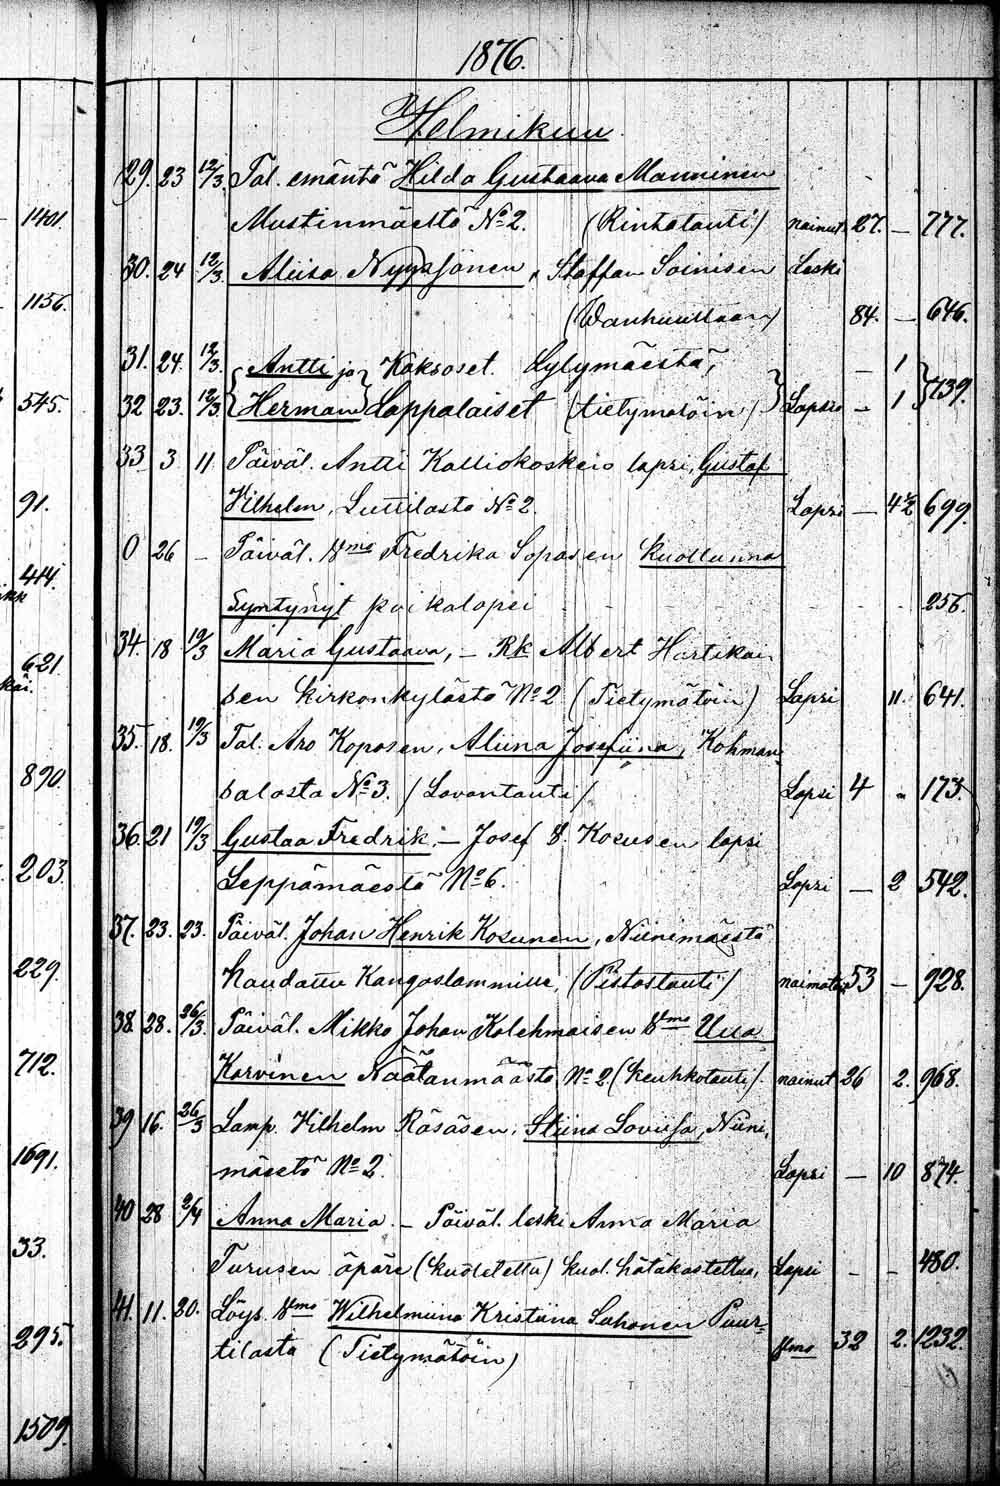 1876.
Helmikuu
29. 23 12/3. Tal. emäntä Hilda Gustaava Manninen
1401. Mustinmäeltä No 2. (Rintatauti) nainut 27. — 777.
30. 24 12/3. Aliisa Nyyssönen, Staffan Soinisen Leski
1156. (Wanhuuttaan) 84. — 646.
31. 24. 12/3. Antti ja Kaksoset. Lylymäestä, — 1
545. 32 23. 12/3. Herman Lappalaiset (tietymätöin) Lapsia — 1 739.
33 3 11 Päiväl. Antti Kalliokosken lapsi, Gustaf
91. Vilhelm, Luttilasta No 2. Lapsi — 4½ 699.
0 26 — Päiväl. Vmo Fredrika Soposen kuolluna
444. Syntynyt poikalapsi - - - - 256.
34. 18 19/3 Maria Gustaava, — Rk Albert Hartikai
621. sen kirkonkylästä No 2 (Tietymätöin) Lapsi 11. 641.
35. 18. 19/3 Tal. Aro Koposen, Aliina Josefiina, Kohman-
890. salosta No 3. /Lavantauti/ Lapsi 4 „ 173.
36. 21 19/3 Gustaa Fredrik, — Josef V. Kosusen lapsi
203. Leppämäestä No 6. Lapsi — 2 542.
37. 23. 23. Päiväl. Johan Henrik Kosunen, Niinimäestä
229. haudattu Kangaslammilla, (Pistostauti) naimatoin 53 — 928.
38. 28. 26/3. Päiväl. Mikko Johan Kolehmaisen Vmo Ulla
712. Karvinen Näätänmäästä No 2. (keuhkotauti). nainut 36 2. 968.
39 16. 26/3 Lamp. Vilhelm Räsäsen, Stiina Loviisa, Niini-
1691. mäestä No 2. Lapsi — 10 874.
40 28 2/4 Anna Maria — Päiväl. leski Anna Maria
33. Turusen äpärä (kuoletettu) kuol. hätäkastettua, Lapsi — — 480.
41. 11. 20. Löys. Vmo Wilhelmiina Kristiina Suhonen Puur-
295. tilasta (Tietymätöin) Vmo 32 2. 1232.
1509.